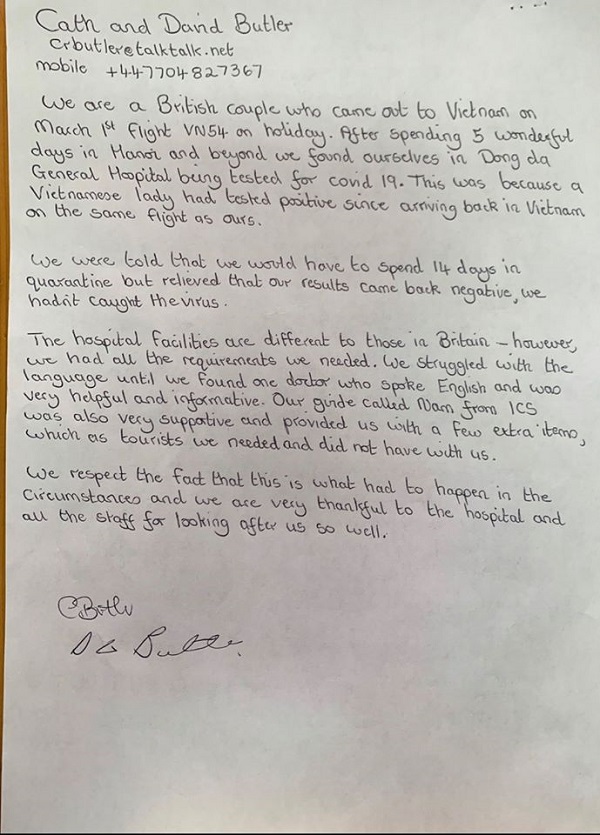 Cath and David Butler
crbutler@talktalk.net
mobile +447704827367
We are a British couple who came out to Vietnam on
March 1st flight VN54 on holiday. After spending 5 wonderful
days in Hanoi and beyond we found ourselves in Dong da
General Hospital being tested for covid 19. This was because a
Vietnamese lady had tested positive since arriving back in Vietnam
on the same flight as ours.
We were told that we would have to spend 14 days in
quarantine but relieved that our results came back negative, we
hadn't caught the virus.
The hospital facilities are different to those in Britain – however,
we had all the requirements we needed. We struggled with the
language until we found one doctor who spoke English and was
very helpful and informative. Our guide called Nam from ICS
was also very supportive and provided us with a few extra items,
which as tourists we needed and did not have with us.
We respect the fact that this is what had to happen in the
circumstances and we are very thankful to the hospital and
all the staff for looking after us so well.
CButler
D G Butler